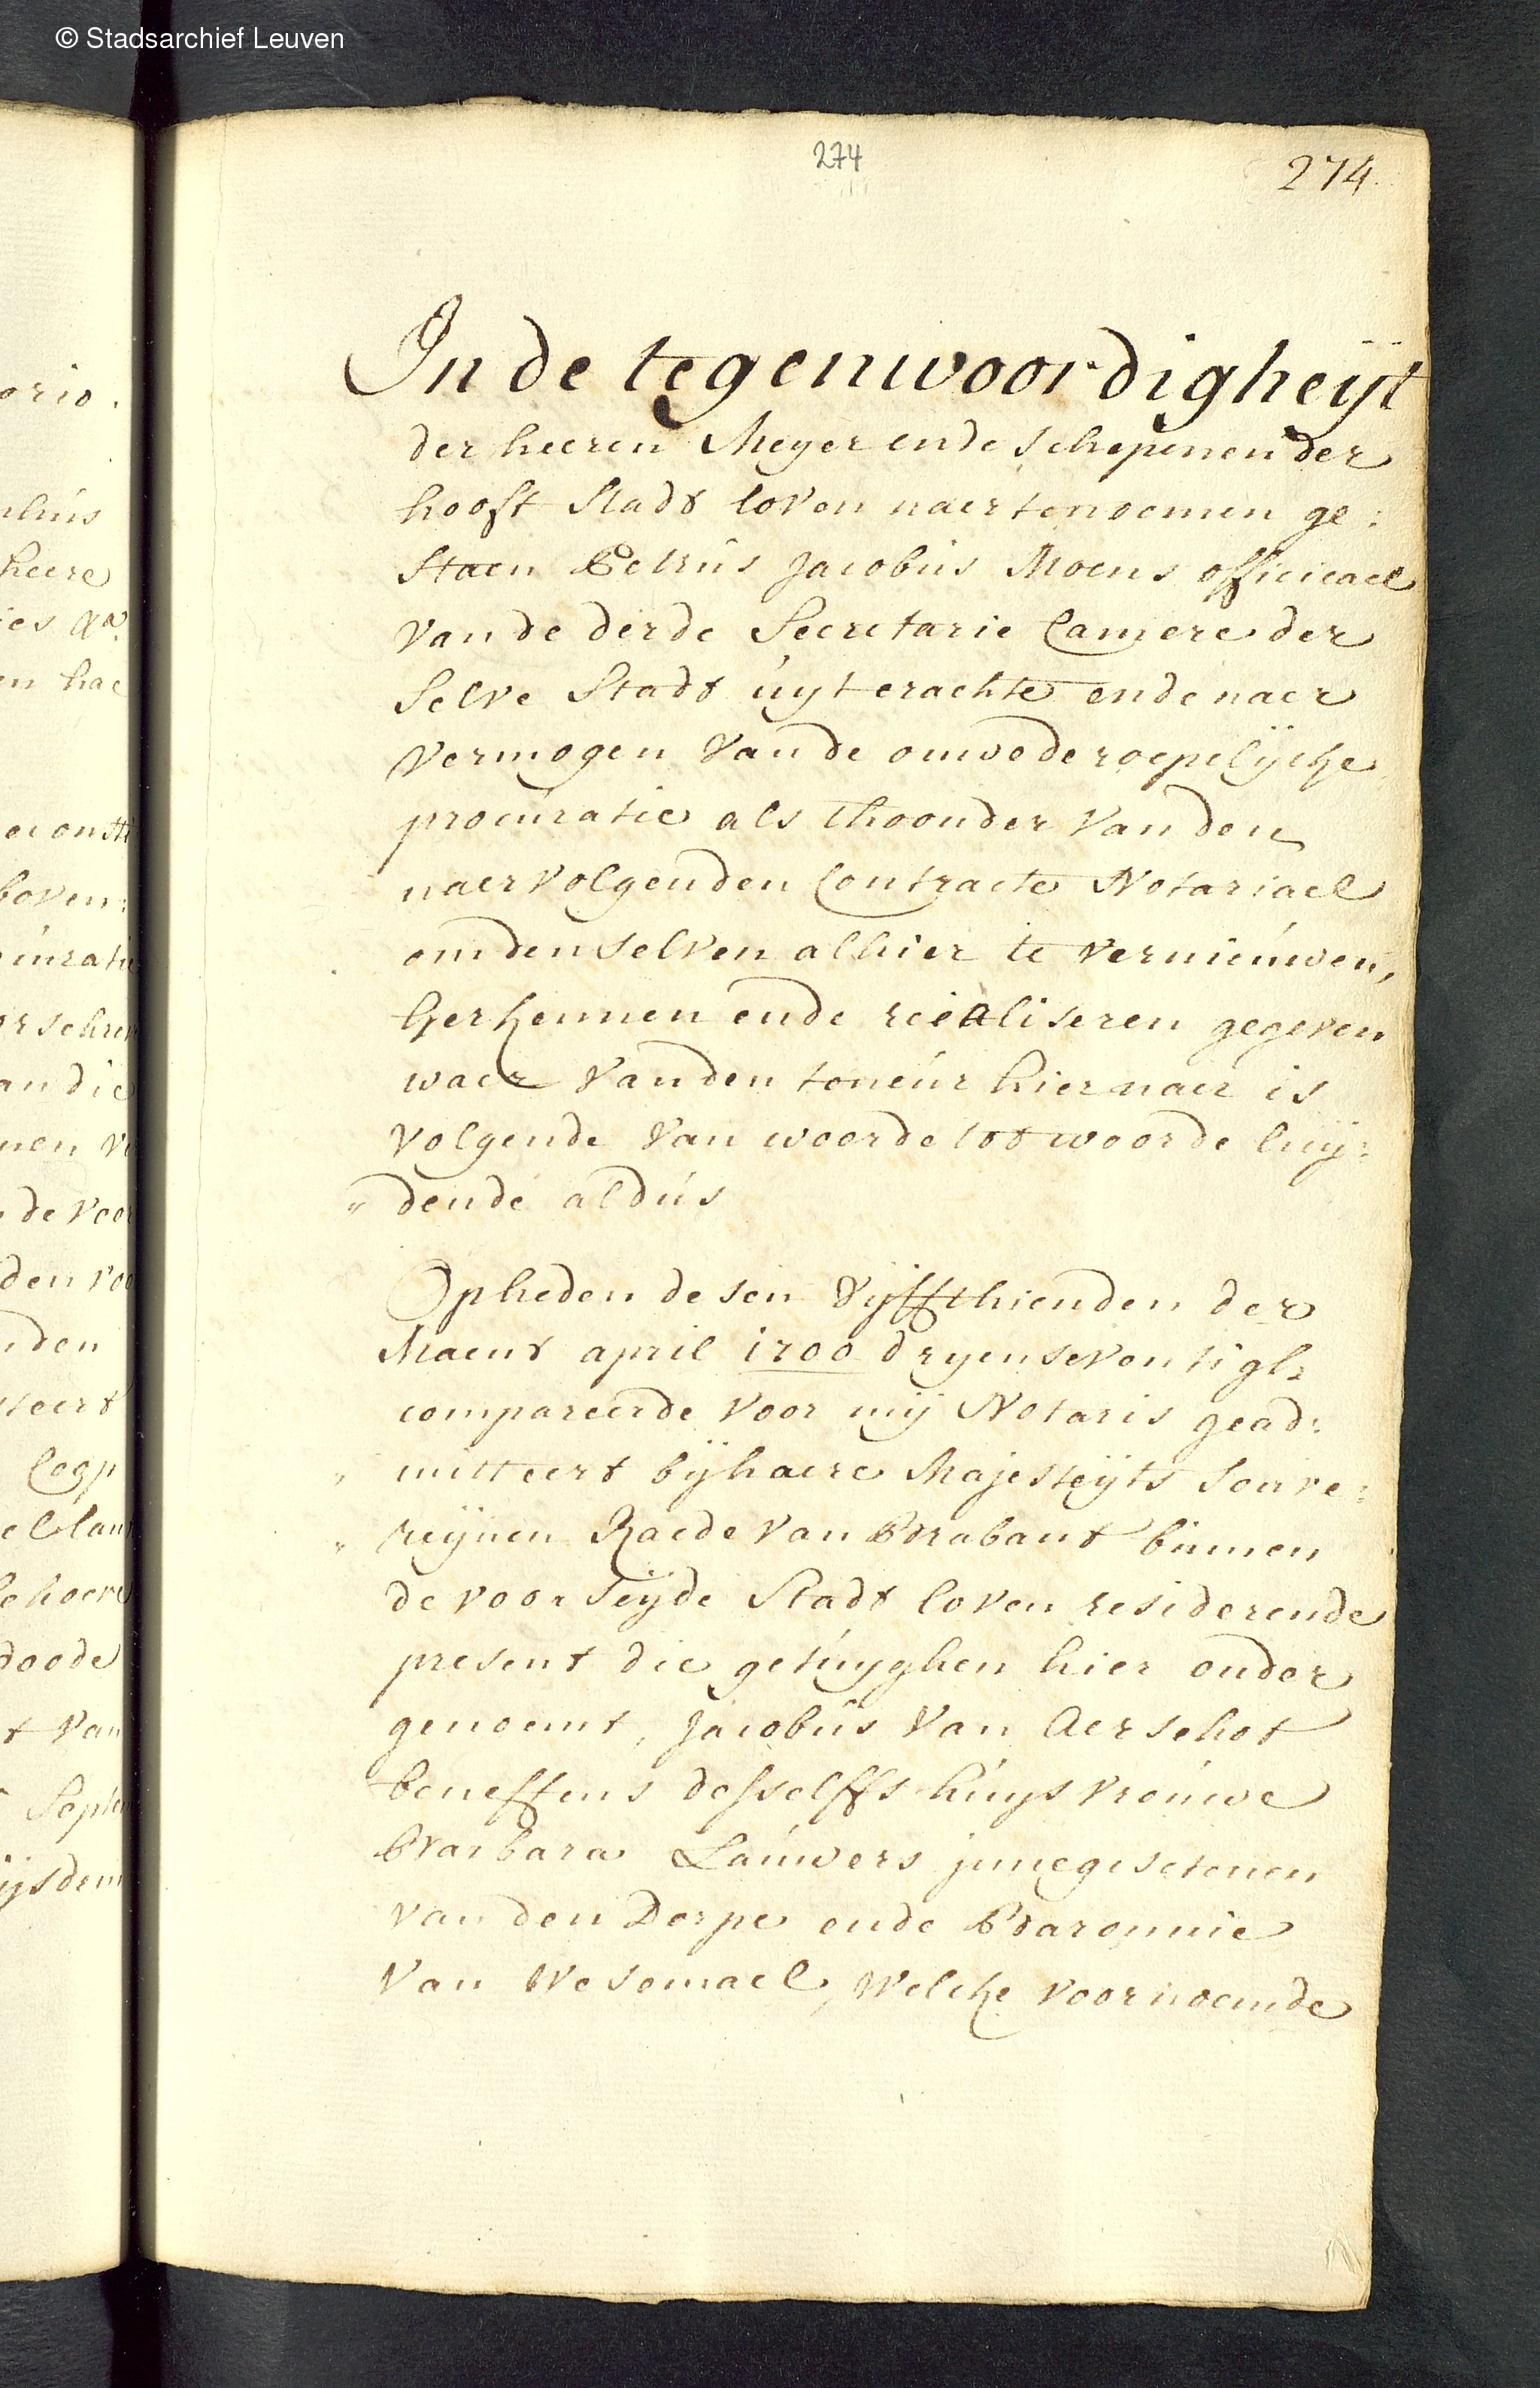 © Stadsarchief Leuven
274
274
orio.
nlius
heere
ies qa
en hac
boven:
inratie
an die
nen v
de voor
den voo
nden
teert
Coop
behoere
doode
t van
Septem
In de tegenwoordigheÿt
der heeren Meyer ende schepenen der
hooft stadt loven naer tenoemen ge:
staen Petrus Jacobus Moens officieael
van de derde Secretarie Camere der
selve Stadt uyt crachte ende naer
vermogen van de onwederoepelÿcke
procuratie als thoonder van den
naervolgenden Contracte Notariael
om den selven alhier te vernieuwen,
herkennen ende reéaliseren gegeven
waer van den teneur hier naer is
volgende van woorde tot woorde luÿ:
" dende aldus
Op heden desen vyffthienden der
Maent april 1700 dryensevontigh
compareerde voor mÿ Notaris gead:
" mitteert bÿ haere Majesteÿts souve:
" reÿnen Raede van Brabant binnen
de voorseÿde Stadt loven residerende
present die getuyghen hier onder
genoemt, Jacobus Van Aerschot
beneffens desselffs huysvrouwe
Barbara Lauwers jnnegesetenen
van den Dorpe ende Baronnie
van Wesemael, welcke voornoemde